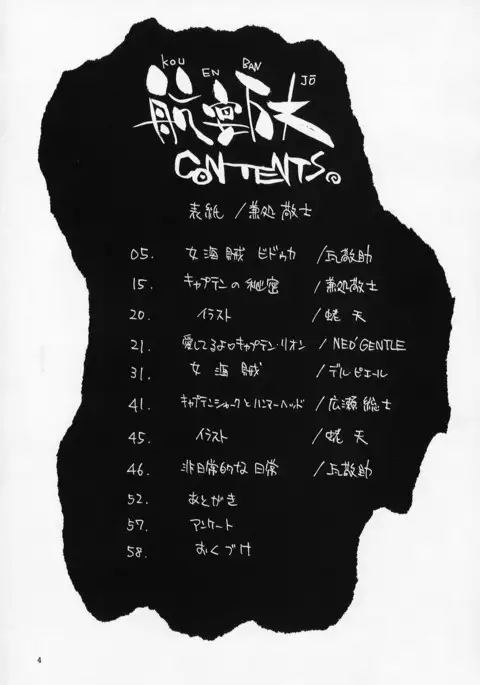 KOU EN BAN JŌ
航宴
CONTENTS。
表紙 / 兼処敬士
05. 女海賊 ビドゥカ / 瓦敬助
15. キャプテンの秘密 / 兼処敬士
20. イラスト / 蛯天
21. 愛してるよ♡キャプテン・リオン / NEO'GENTLE
31. 女海賊 / デルピエール
41. キャプテンシャークとハンマーヘッド / 広瀬総士
45. イラスト / 蛯天
46. 非日常的な日常 / 瓦敬助
52. あとがき
57. アンケート
58. おくづけ
4